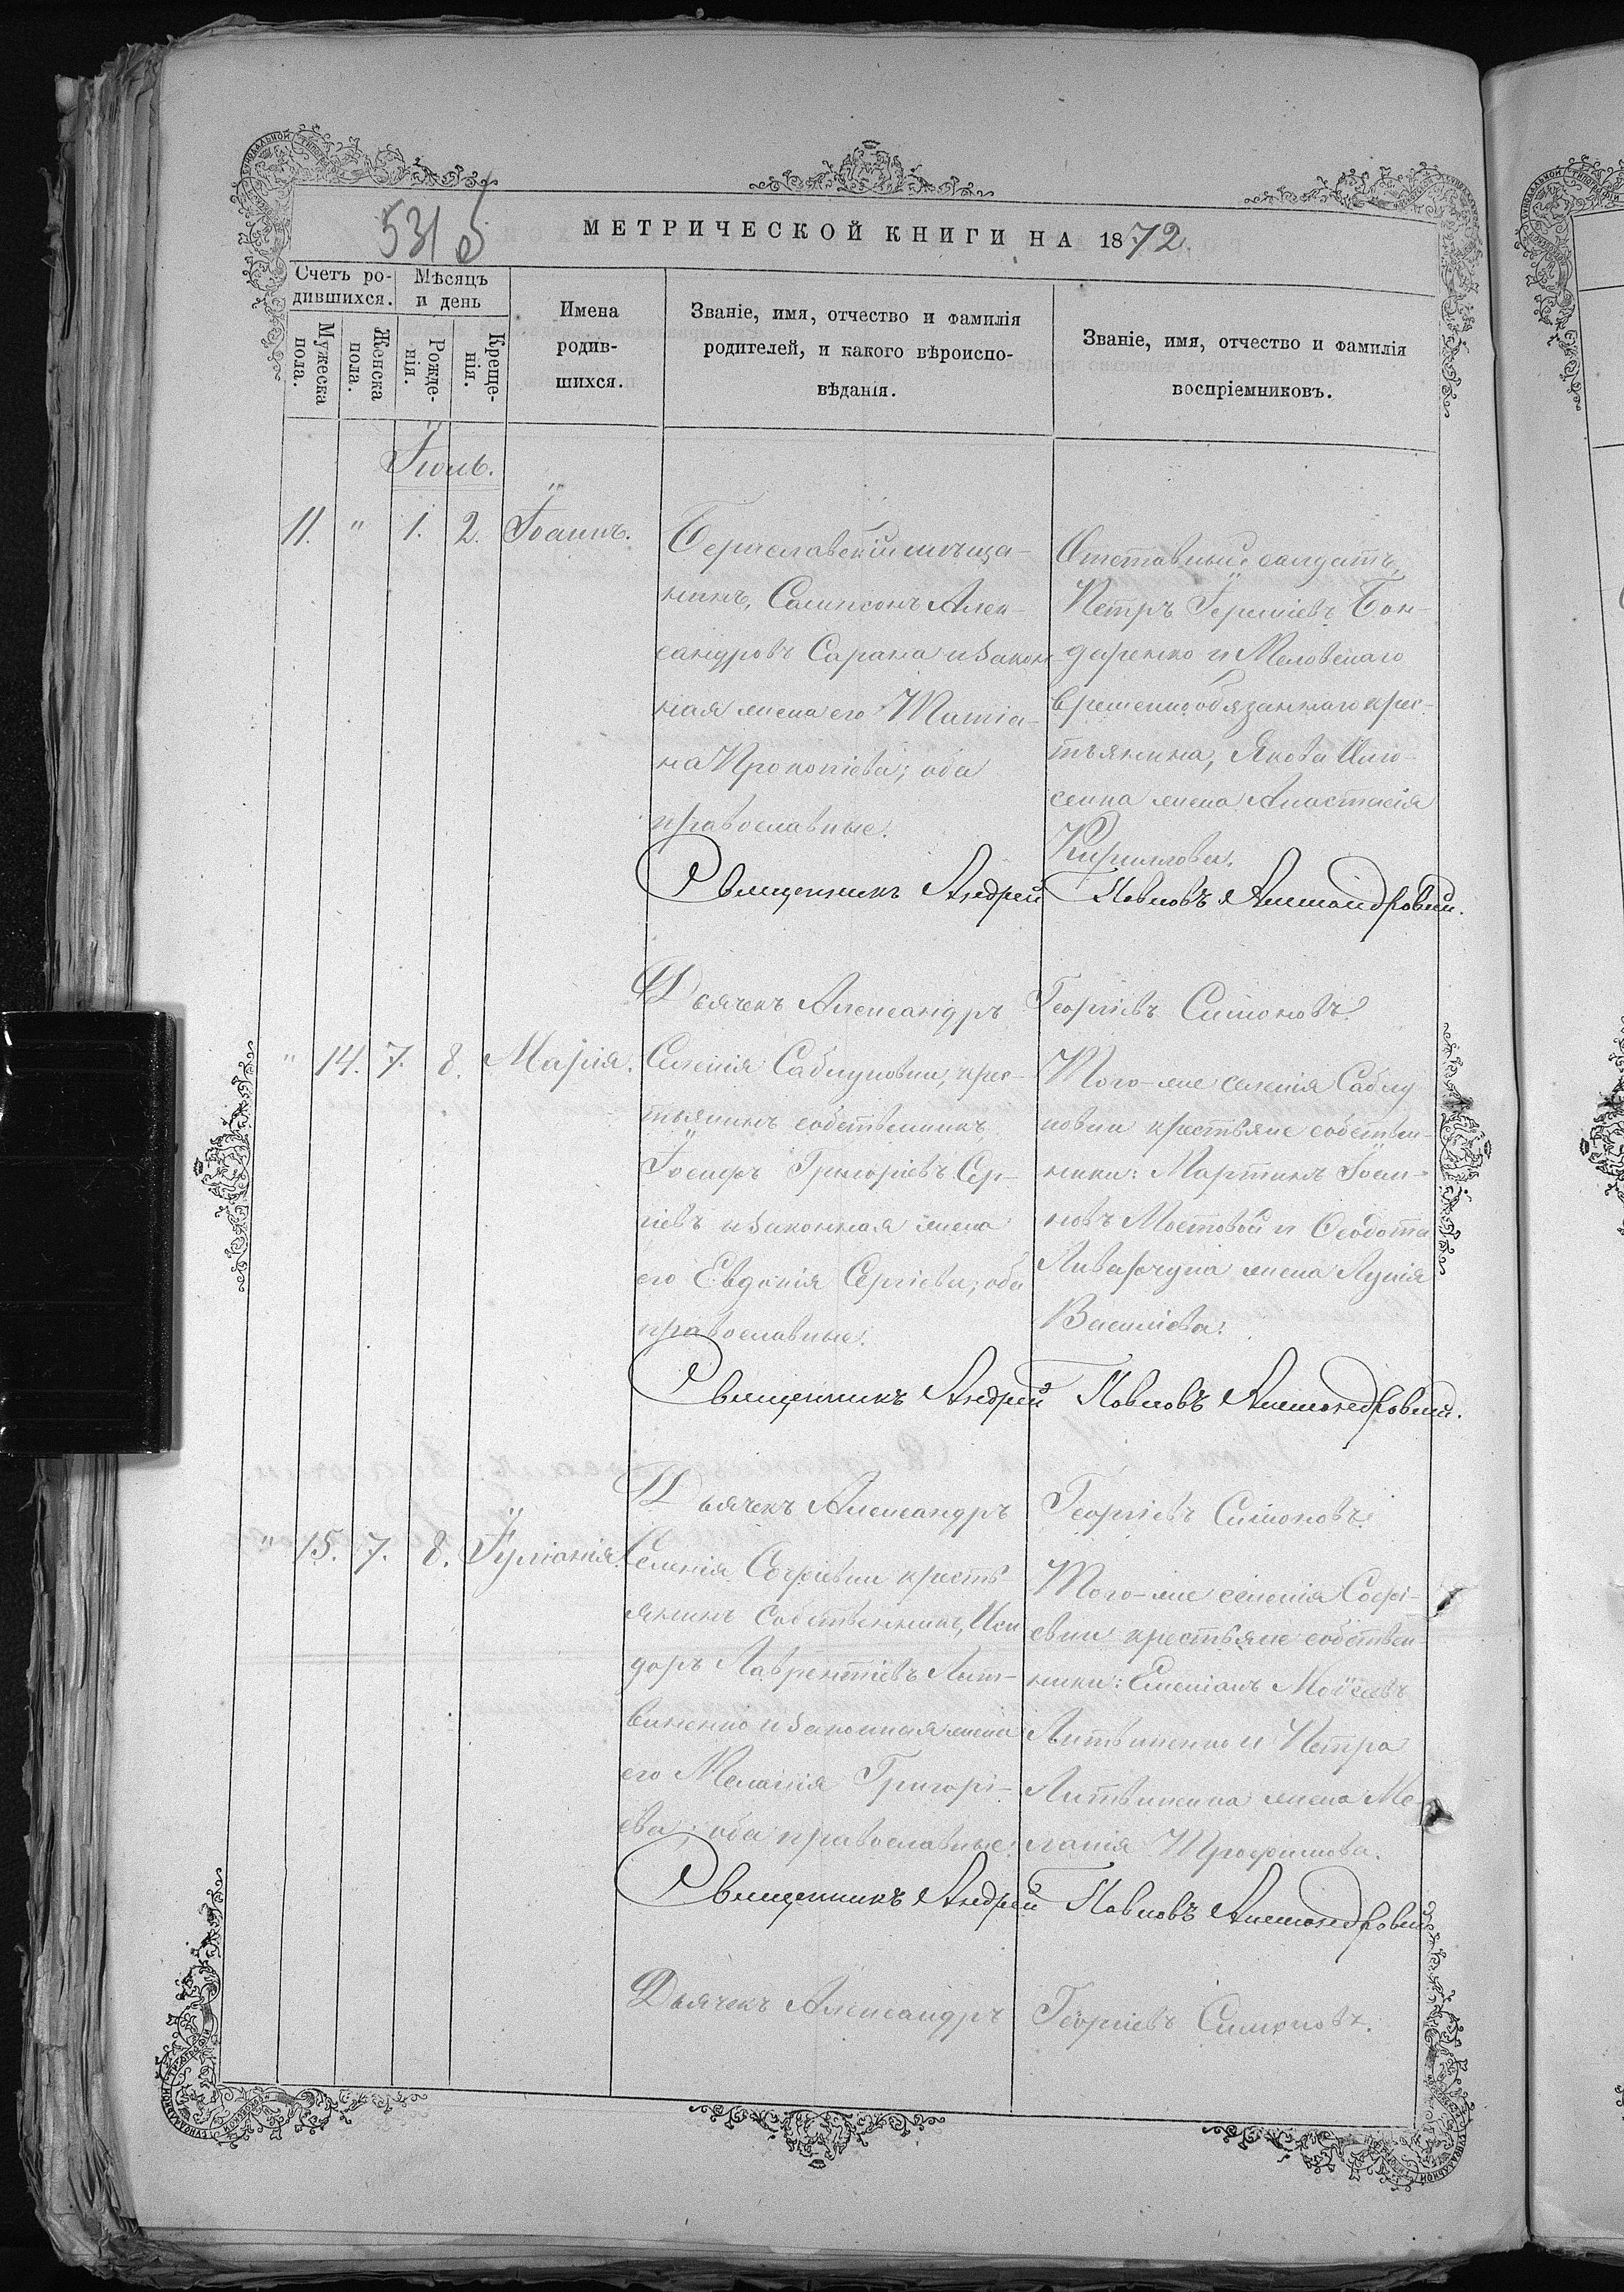 531 б
МЕТРИЧЕСКОЙ КНИГИ НА 1872.
Счетъ ро-
дившихся.
Мѣсяцъ
и день
Мужеска
пола.
Женска
пола.
Рожде-
нія.
Креще-
нія.
Имена
родив-
шихся.
Званіе, имя, отчество и фамилія
родителей, и какого вѣроиспо-
вѣданія.
Званіе, имя, отчество и фамилія
воспріемниковъ.
Іюль.
11. " 1. 2. Іоаннъ.
Бериславскій мѣща-
нинъ, Сампсонъ Алек-
сандровъ Сарана и закон
ная жена его Татіа-
на Прокопіева; оба
православные.
Отставный солдатъ,
Петръ Бон-
даренко и Меловскаго
временнообязаннаго крес-
тьянина, Якова
жена Анастасія
Кириллова.
Священникъ Андрей Павловъ
Дьячекъ Александръ Георгіевъ Симоновъ.
" 14. 7. 8. Марія.
Селенія Саблуковки, крес-
тьянинъ собственникъ,
Іосифъ Григоріевъ Сер-
гіевъ и законная жена
его Евдокія Сергіева; оба
православные.
Того-же селенія Саблу
ковки крестьяне собствен-
ники: Мартинъ Іоан-
новъ Мостовой и Ѳеодота
жена Лукія
Василіева.
Священникъ Андрей Павловъ
Дьячекъ Александръ Георгіевъ Симоновъ.
" 15. 7. 8. Іуліанія.
Селенія Софіевки кресть
янинъ собственникъ, Иси
доръ Лаврентіевъ Лит-
виненко и законная жена
его Меланія Григорі-
ева; оба православные.
Того-же селенія Софі-
евки крестьяне собствен
ники: Емеліанъ Моѵсеевъ
Литвиненко и Петра
Литвиненка жена Ме-
ланія Трофимова.
Священникъ Андрей Павловъ
Дьячекъ Александръ Георгіевъ Симоновъ.